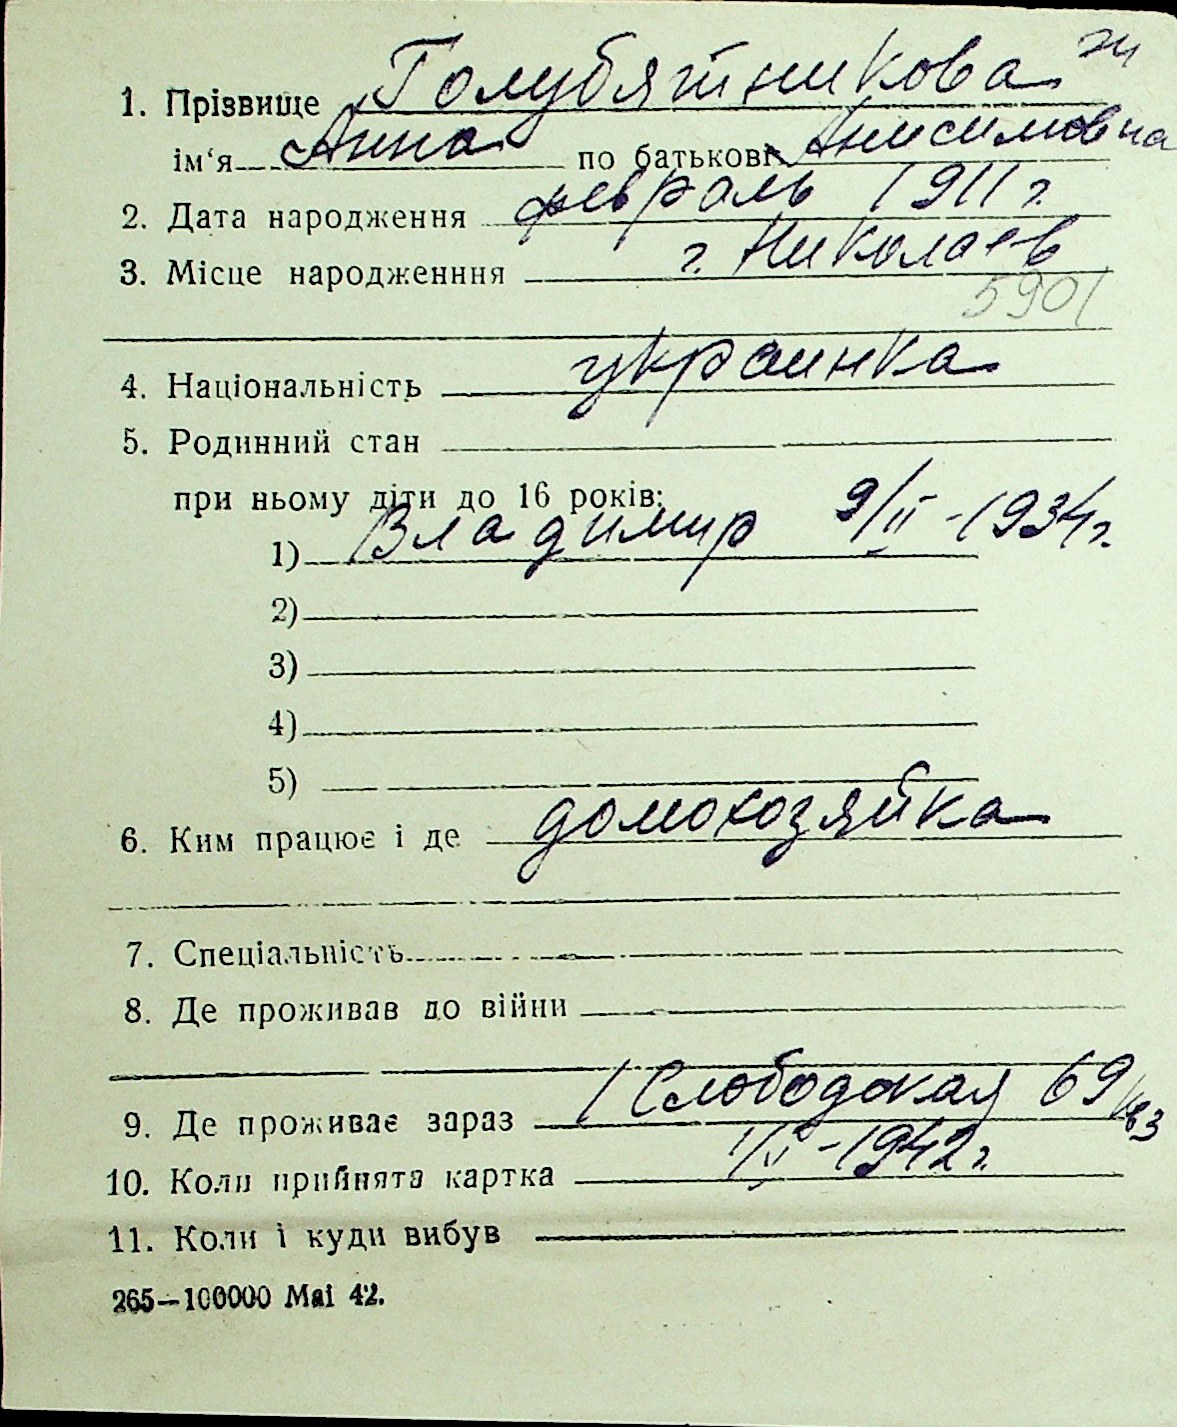 1. Прізвище Голубятникова
ім'я Анна по батькові Анисимовна
2. Дата народження февраль 1911 г.
3. Місце народженння г. Николаев
5901
4. Національність украинка
5. Родинний стан
при ньому діти до 16 років:
1) Владимир 9/II - 1934 г.
2)
3)
4)
5)
6. Ким працює і де домохозяйка
7. Спеціальність
8. Де проживав до війни
9. Де проживає зараз 1 Слободская 69
10. Коли прийнята картка 1/II - 1942 г.
11. Коли і куди вибув
265—100000 Mai 42.